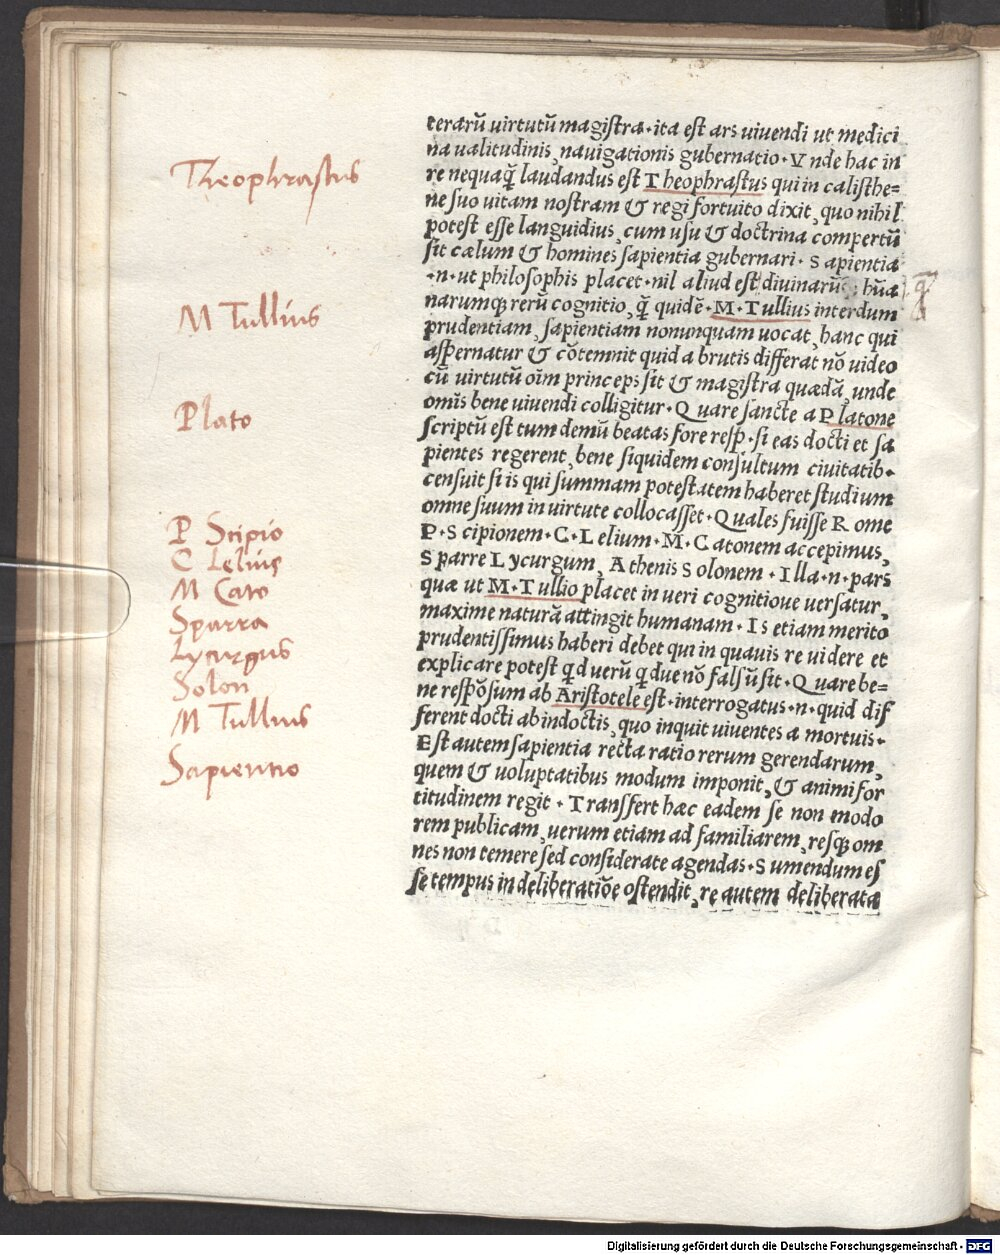 Theophrastus
M Tullius
Plato
P Scipio
C Lelius
M Cato
Sparra
Lycurgus
Solon
M Tullius
Sapientio
terarū uirtutū magiſtra · ita eſt ars uiuendi ut medici
na ualitudinis, nauigationis gubernatio · Vnde hac in
re nequaq̃ laudandus eſt Theophraſtus qui in caliſthe=
ne ſuo uitam noſtram & regi fortuito dixit, quo nihil
poteſt eſſe languidius, cum uſu & doctrina compertū
ſit cælum & homines ſapientia gubernari · Sapientia
·n· ut philoſophis placet · nil aliud eſt diuinarū hūa
narumq; rerū cognitio, q̃ quidē · M · Tullius interdum
prudentiam, ſapientiam nonunquam uocat, hanc qui
aſpernatur & cōtemnit quid a brutis differat nō uideo
cū uirtutū oīm princeps ſit & magiſtra quædā, unde
omīs bene uiuendi colligitur · Quare ſancte a Platone
ſcriptū eſt tum demū beatas fore reſp̄ · ſi eas docti et ſa
pientes regerent, bene ſiquidem conſultum ciuitatib·
cenſuit ſi is qui ſummam poteſtatem haberet ſtudium
omne ſuum in uirtute collocaſſet · Quales fuiſſe Rome
P · Scipionem · C · Lelium · M · Catonem accepimus,
Sparre Lycurgum, Athenis Solonem · Illa · n · pars
quæ ut M · Tullio placet in ueri cognitioue uerſatur,
maxime naturā attingit humanam · Is etiam merito
prudentiſſimus haberi debet qui in quauis re uidere et
explicare poteſt qd uerū qdue nō falſū ſit · Quare be=
ne reſpōſum ab Ariſtotele eſt · interrogatus · n · quid dif
ferent docti ab indoctis, quo inquit uiuentes a mortuis ·
Eſt autem ſapientia recta ratio rerum gerendarum,
quem & uoluptatibus modum imponit, & animi for
titudinem regit · Tranſfert hæc eadem ſe non modo
rem publicam, uerum etiam ad familiarem, reſq; om
nes non temere ſed conſiderate agendas · Sumendum eſ
ſe tempus in deliberatiōe oſtendit, re autem deliberata
Digitalisierung gefördert durch die Deutsche Forschungsgemeinschaft - DFG